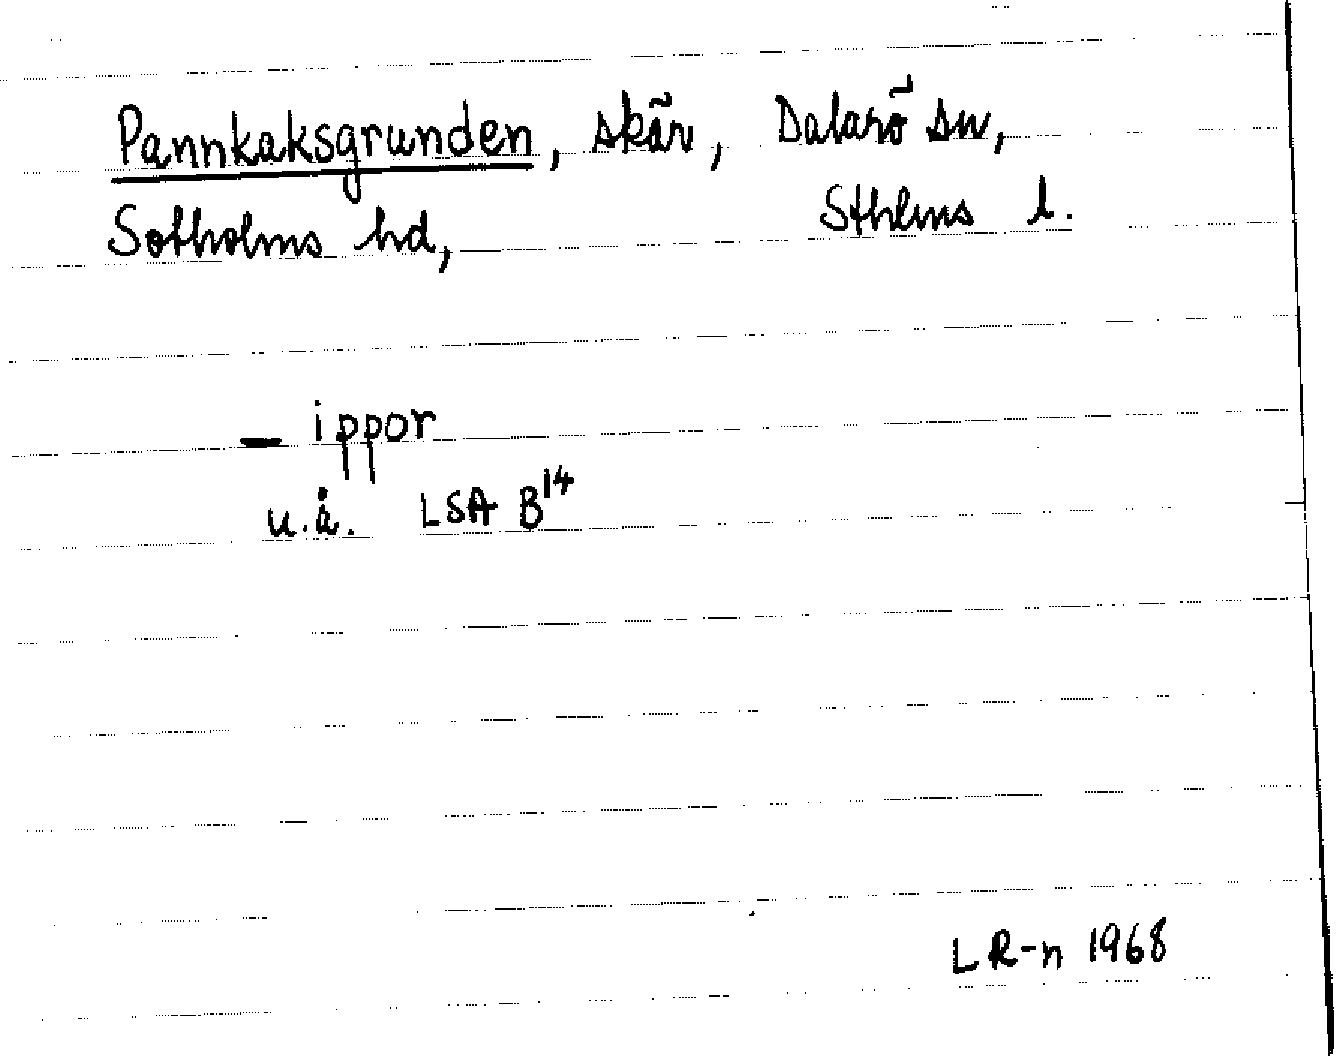 Pannkaksgrunden, skär, Dalarö sn,
Sotholms hd, Sthlms l.
— ippor
u.å. LSA B14
LR-n 1968